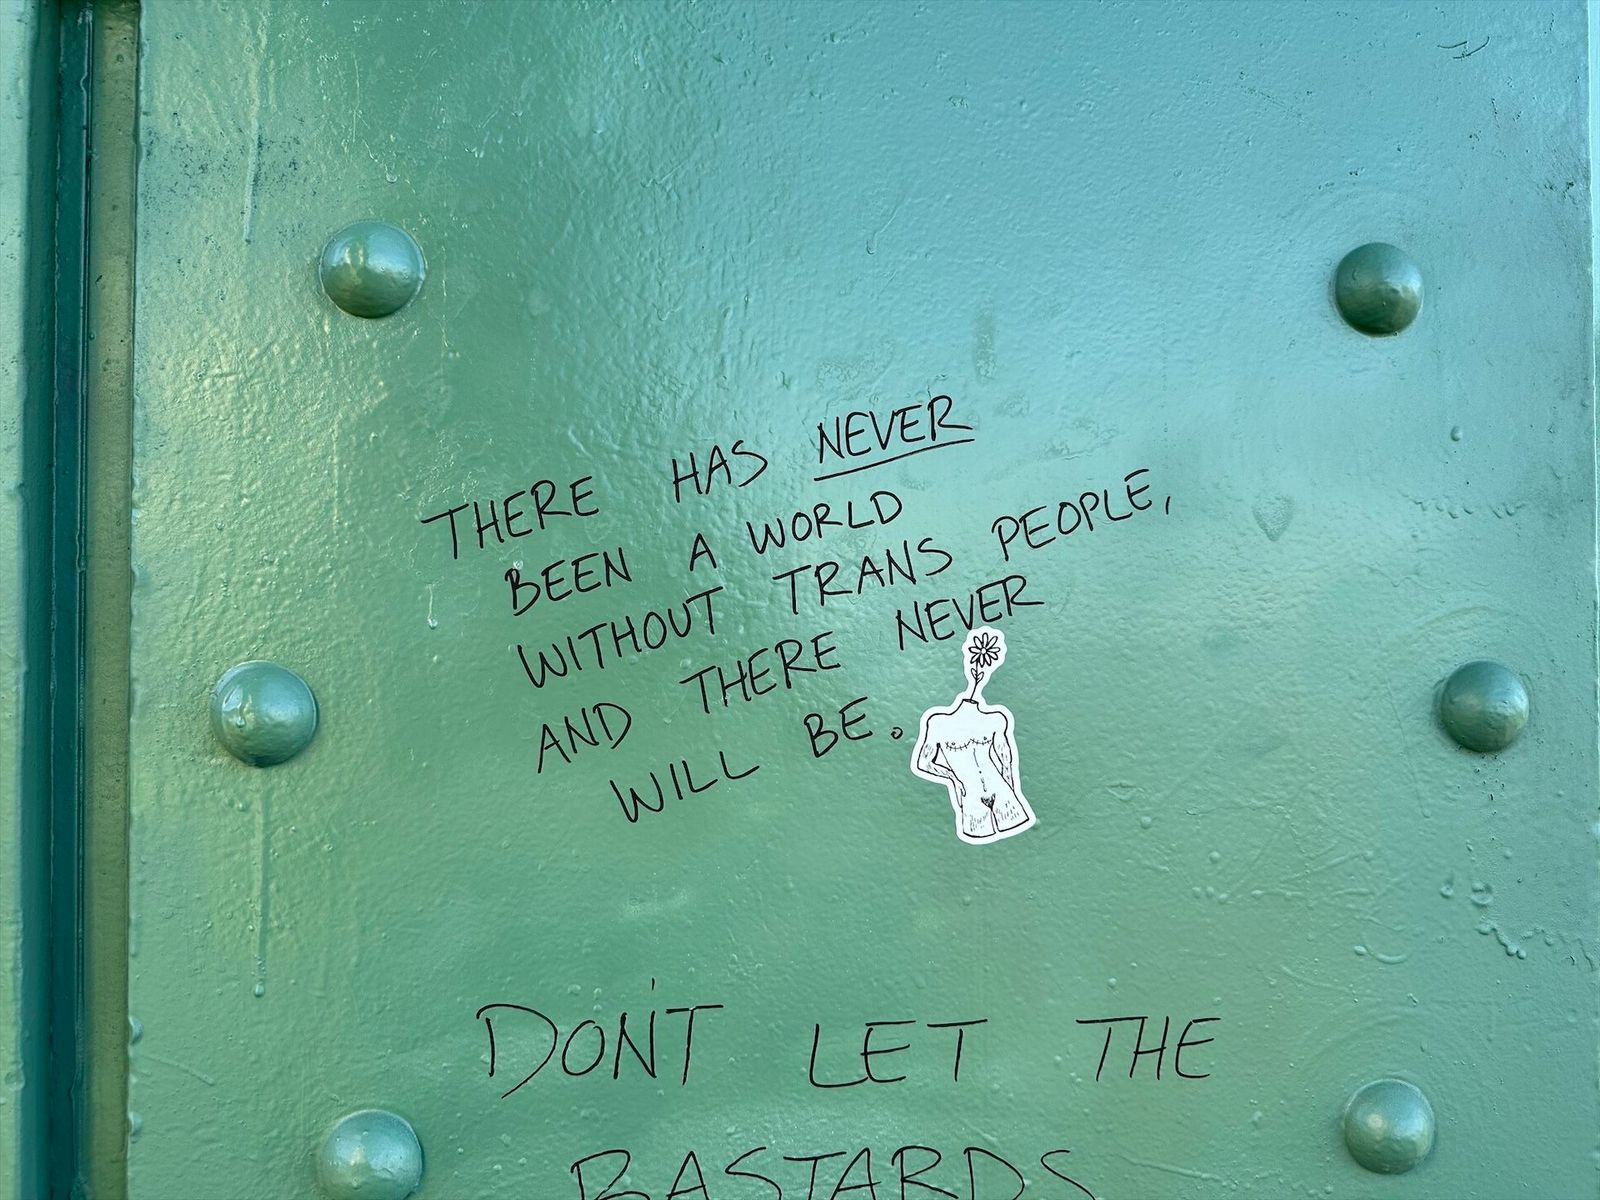 THERE HAS NEVER
BEEN A WORLD
WITHOUT TRANS PEOPLE,
AND THERE NEVER
WILL BE.
DON'T LET THE
BASTARDS